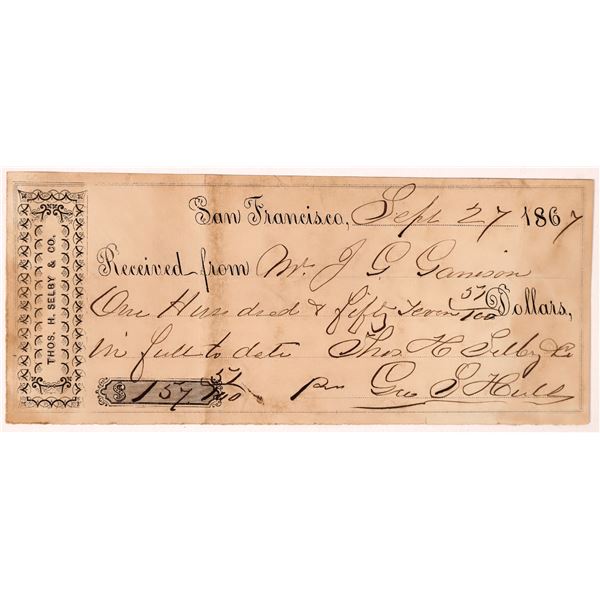 THOS. H. SELBY & CO.
San Francisco, Sept 27 1867
Received from Mr J. G. Garrison
One Hundred & fifty seven 57/100 Dollars,
in full to date Thos H Selby & Co
$ 157. 57/100 per Geo S Hull